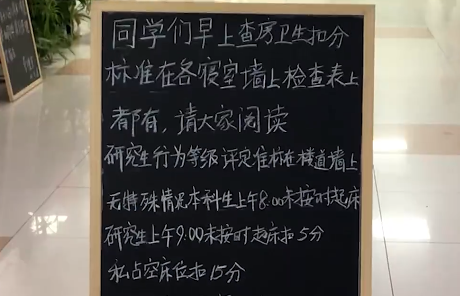 同学们早上查房卫生扣分
标准在各寝室墙上检查表上
都有，请大家阅读
研究生行为等级评定准标在楼道墙上
无特殊情况本科生上午8.00未按时起床
研究生上午9.00未按时起床扣5分
私占空床位扣15分